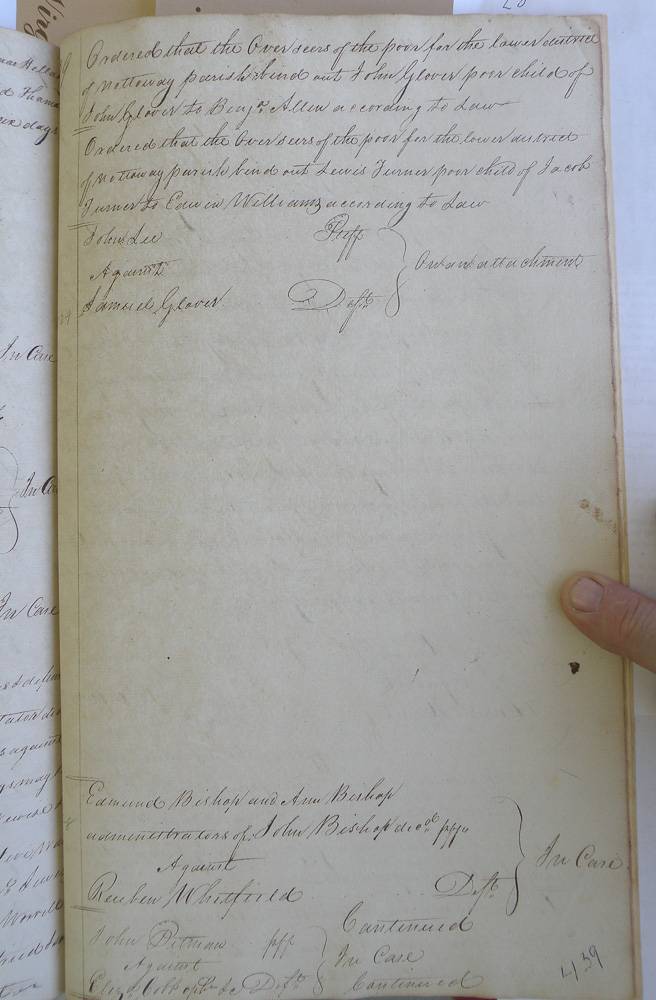 Ordered that the Overseers of the poor for the lower district
of Nottoway parish bind out John Glover poor child of
John Glover to Benjn. Allen according to Law
Ordered that the Overseers of the poor for the lower district
of Nottoway parish bind out Lewis Turner poor child of Jacob
Turner to Edwin Williams according to Law
John Lee Plff
Against
On an attachment
Samuel Glover Deft
Edmund Bishop and Ann Bishop
administrators of John Bishop decd. plff
Against
In Case
Reuben Whitfield Deft
Continued
John Pitman plff
In Case
Against
Deft
Continued
439
In Case
In Case
days
against